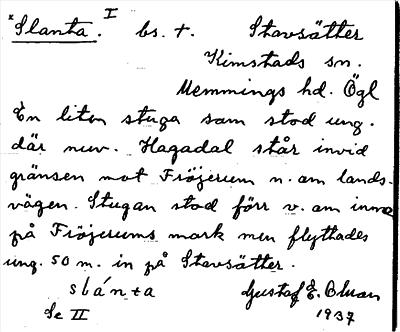 *Slanta. I bs. t. Stavsätter
Kimstads sn.
Memmings hd. Ögl
En liten stuga som stod ung.
där nuv. Hagadal står invid
gränsen mot Fröjerum n. om lands-
vägen. Stugan stod förr v. om inne
på Fröjerums mark men flyttades
ung. 50 m. in på Stavsätter.
slánta Gustaf E. Olman
Se II 1937